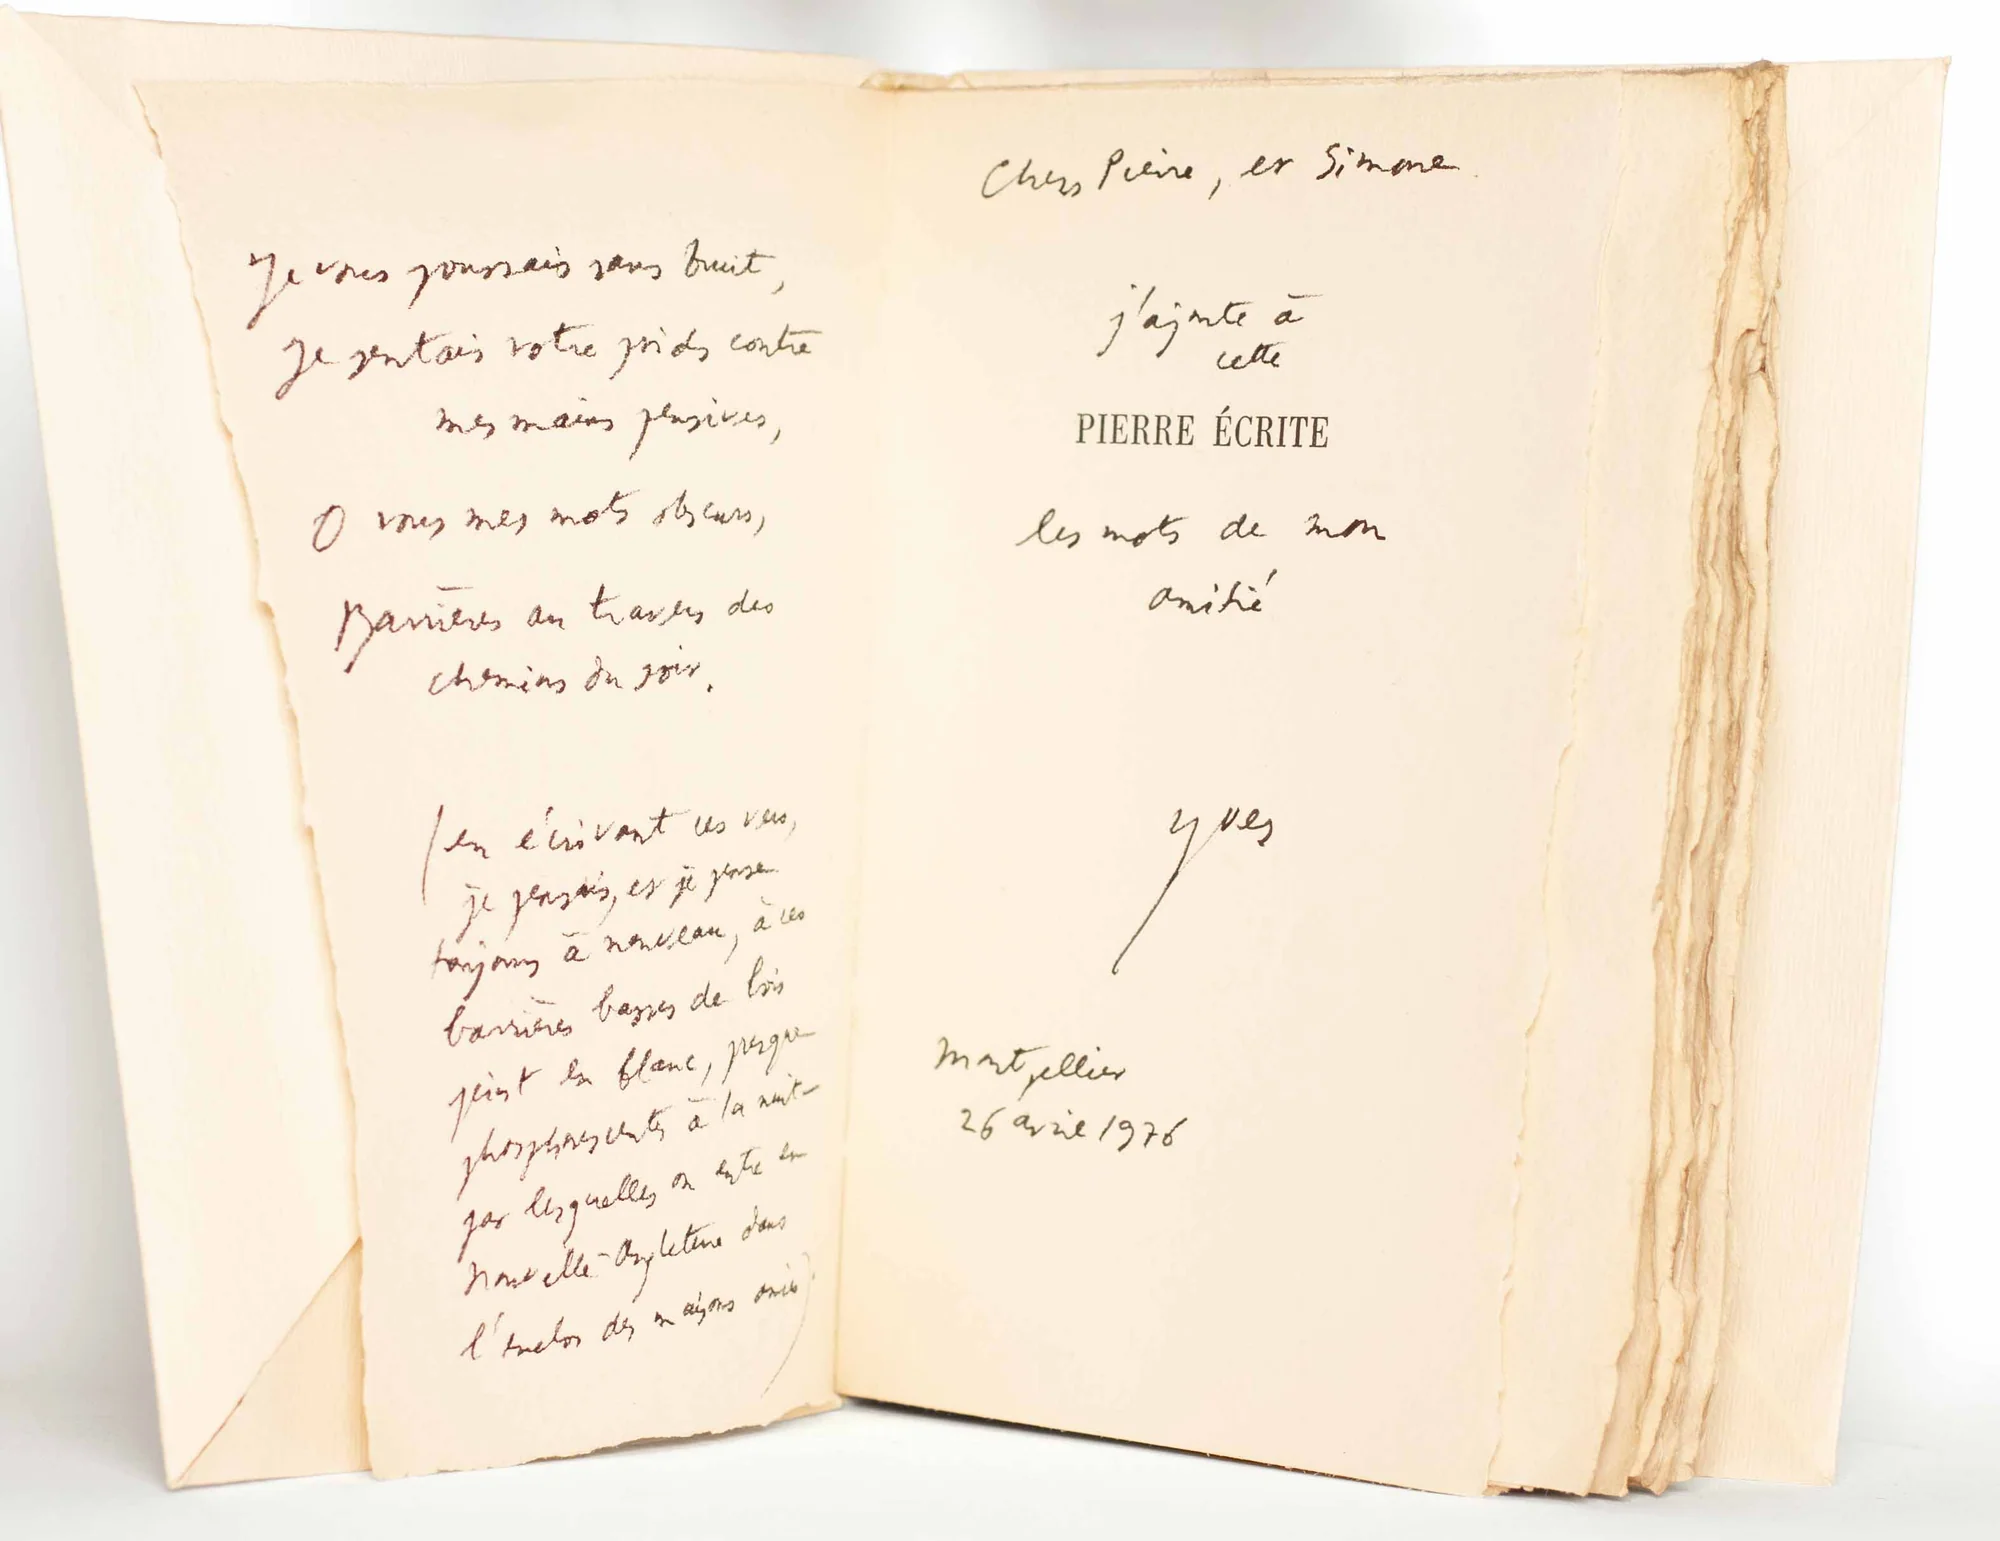 Je vous poussais sans bruit,
je sentais votre poids contre
mes mains pensives,
O vous mes mots obscurs,
Barrières au travers des
chemins du soir.
(en écrivant ces vers,
je pensais, et je pense
toujours à nouveau, à ces
barrières basses de bois
peint en blanc, presque
phosphorescentes à la nuit
par lesquelles on entre en
Nouvelle-Angleterre dans
l'enclos des maisons amies)
Chers Pierre, et Simone.
j'ajoute à
cette
PIERRE ÉCRITE
les mots de mon
amitié
Yves
Montpellier
26 avril 1976